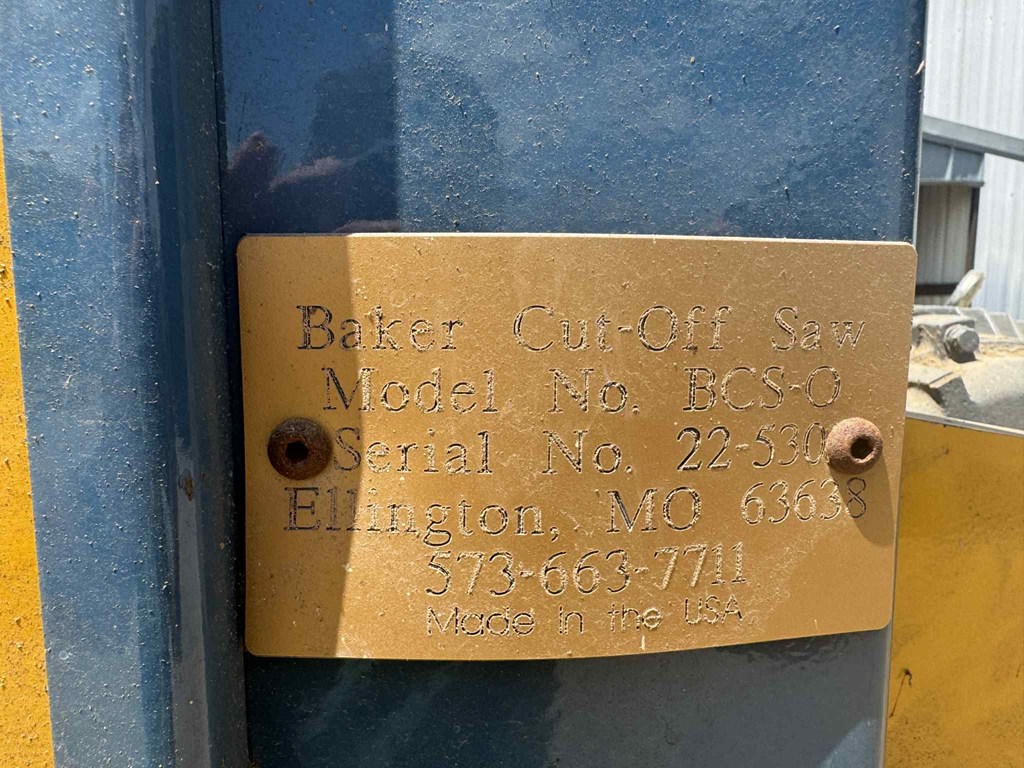 Baker Cut-Off Saw
Model No. BCS-O
Serial No.
Ellington, MO 63638
573-663-7711
Made in the USA